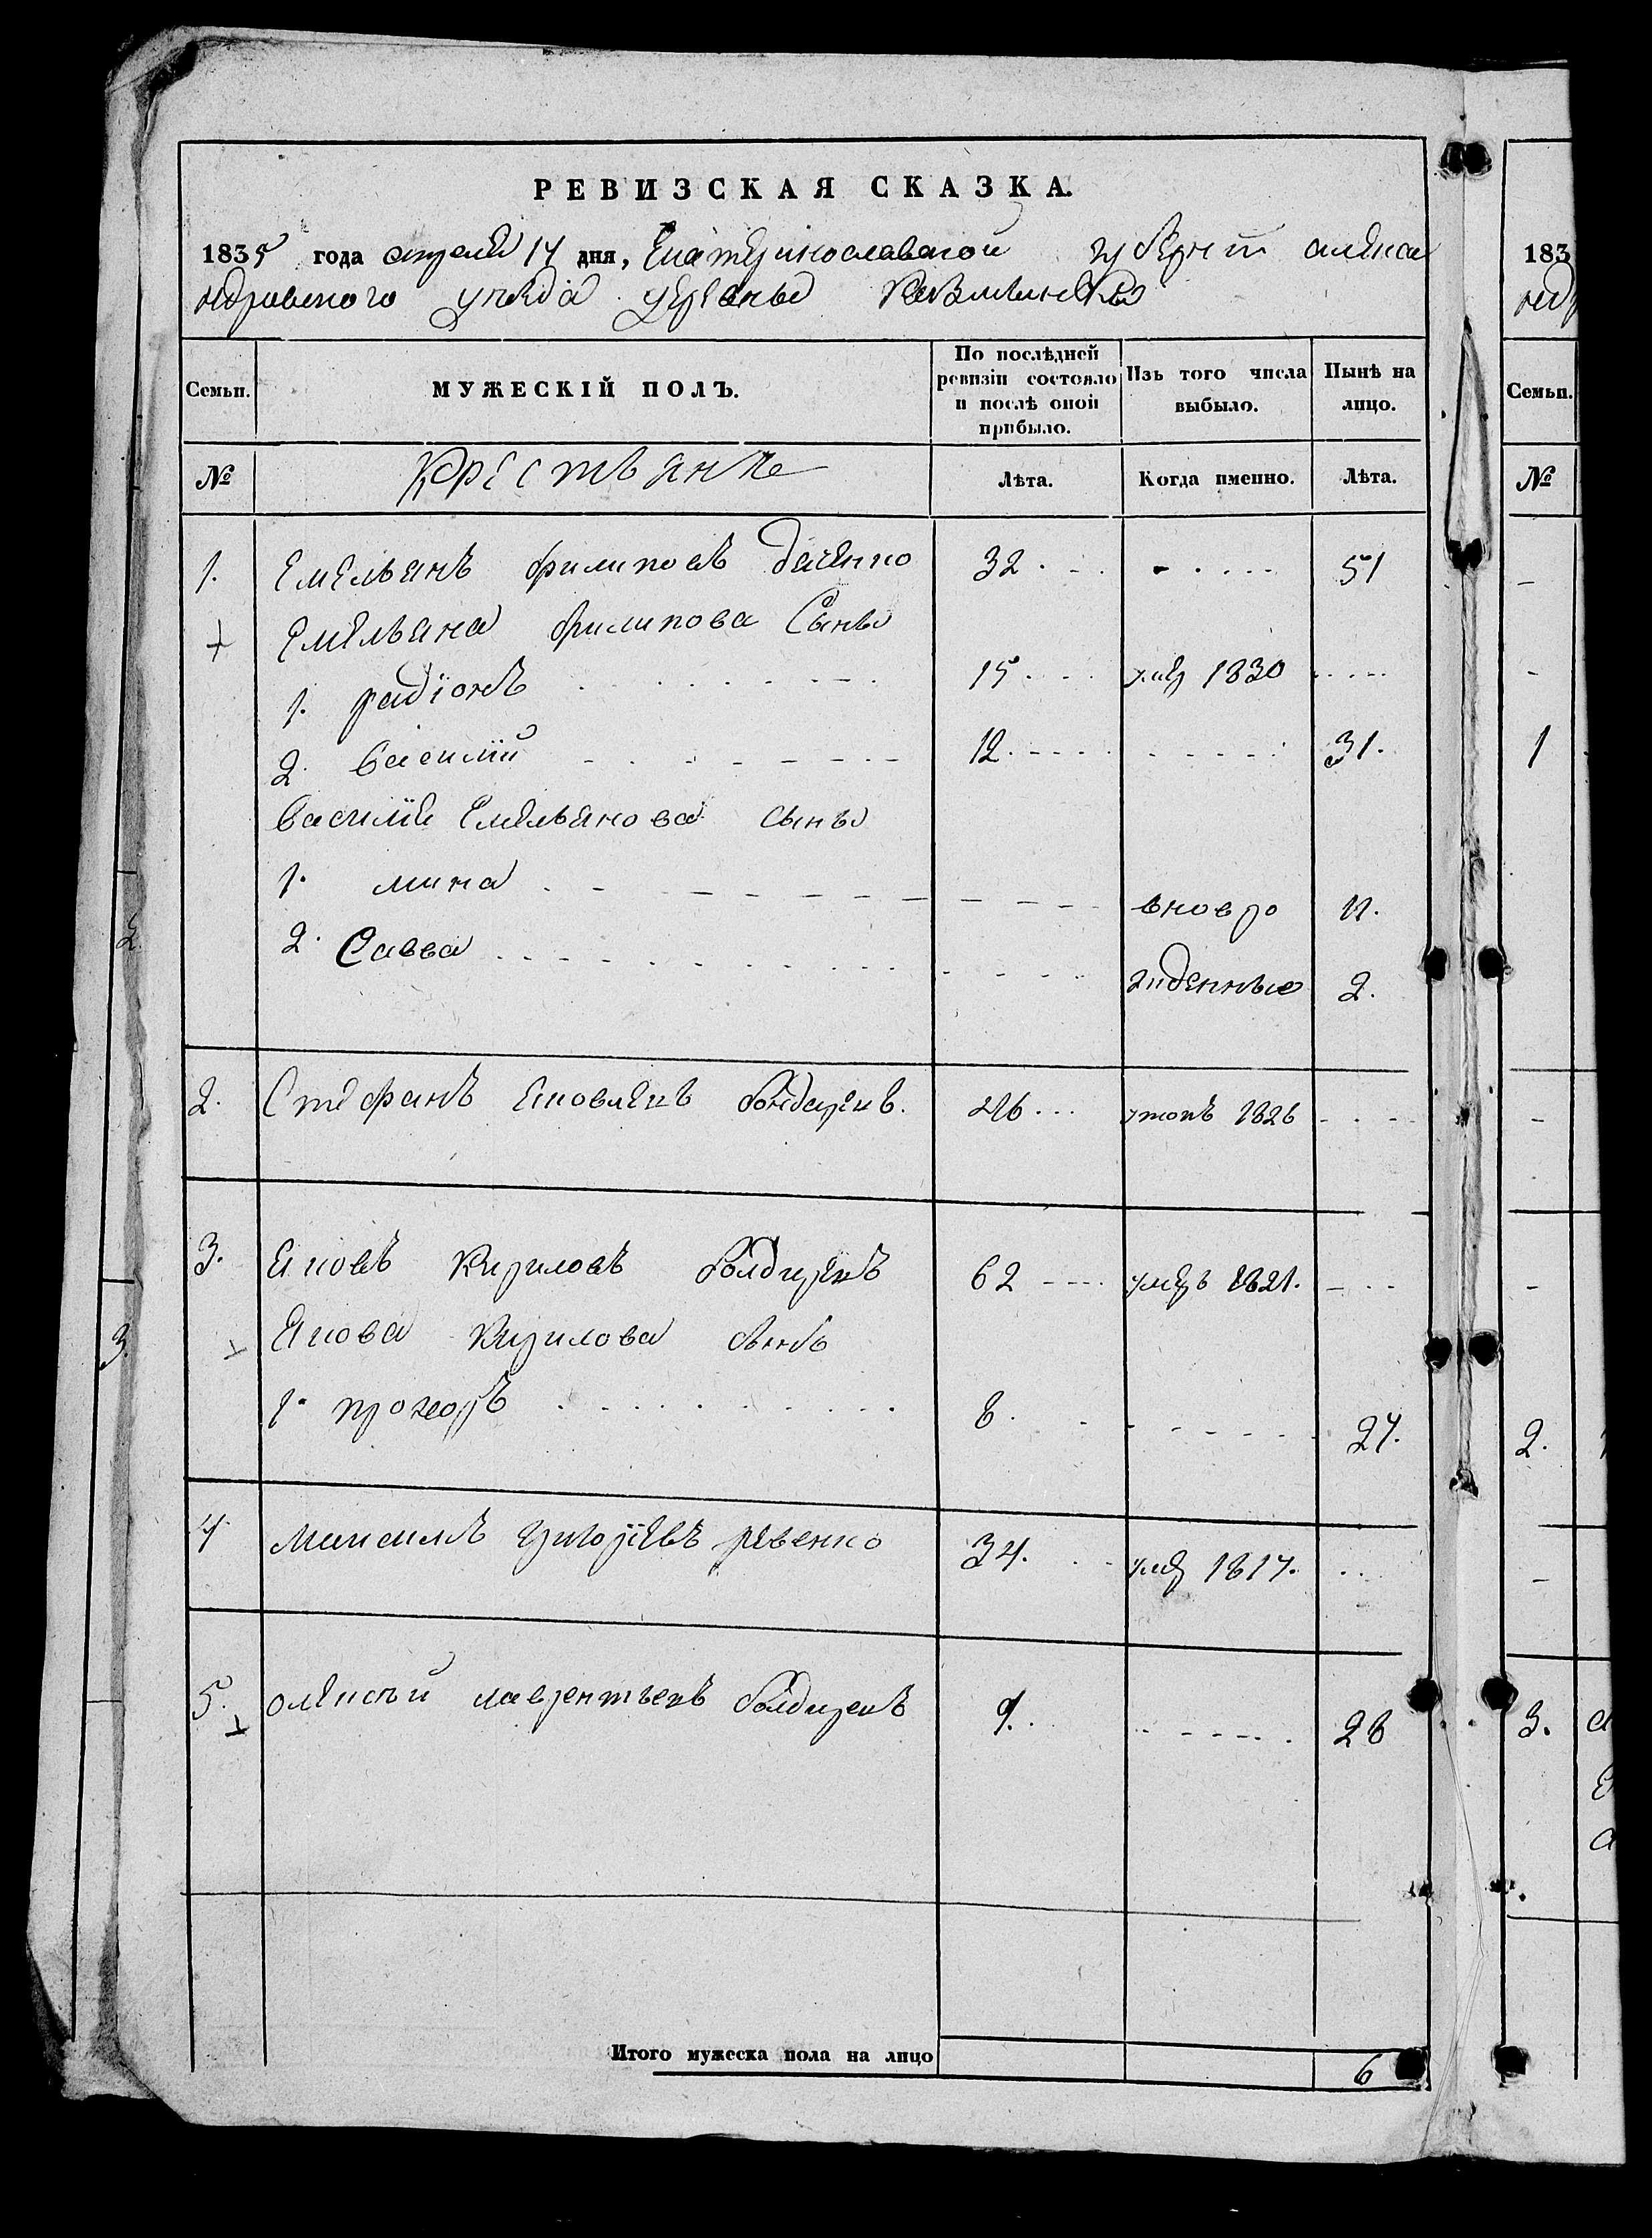 РЕВИЗСКАЯ СКАЗКА.
1835 года апреля 14 дня, Екатеринославской губернии алекса
ндровского уезда деревны
Семьи. МУЖЕСКІЙ ПОЛЪ. По послѣдней ревизіи состояло и послѣ оной прибыло. Изъ того числа выбыло. Нынѣ на лицо.
№ Крестьяне Лѣта. Когда именно. Лѣта.
1. Емельянъ филиповъ даченко 32 51
Емельяна филипова Сыны
1. радіонъ 15 умер 1830
2. василій 12 31.
василія Емельянова сыны
1. мина вновь ро 11.
2. Савва жденные 2.
2. Стефанъ яковлевъ бондарев. 46 утопъ 1826
3. яковъ Кириловъ болдыревъ 62 умеръ 1821.
якова Кирилова сынъ
1. прохоръ 8. 27.
4 максимъ григоріевъ ревенко 34. умер 1817.
5. олексѣй лаврентьевъ болдыревъ 9. 28
Итого мужеска пола на лицо 6
183
ндр
Семьи.
№
1
2.
3.
2.
3.